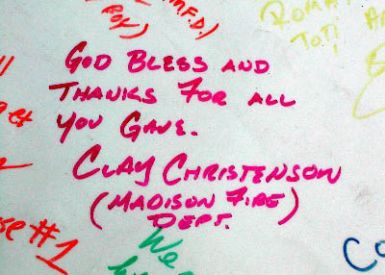 God Bless and
Thanks For all
You Gave.
Clay Christenson
(Madison Fire)
Dept.
We
#1